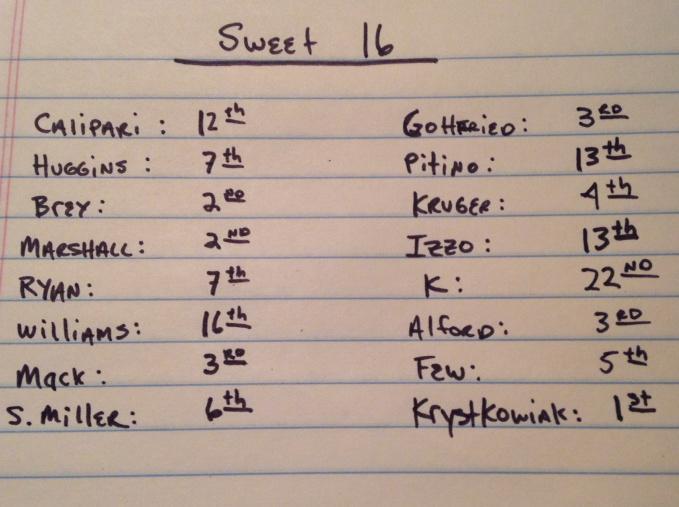 Sweet 16
Calipari: 12th
Huggins: 7th
Brey: 2nd
Marshall: 2nd
Ryan: 7th
Williams: 16th
Mack: 3rd
S. Miller: 6th
Gottfried: 3rd
Pitino: 13th
Kruger: 4th
Izzo: 13th
K: 22nd
Alford: 3rd
Few: 5th
Krystkowiak: 1st